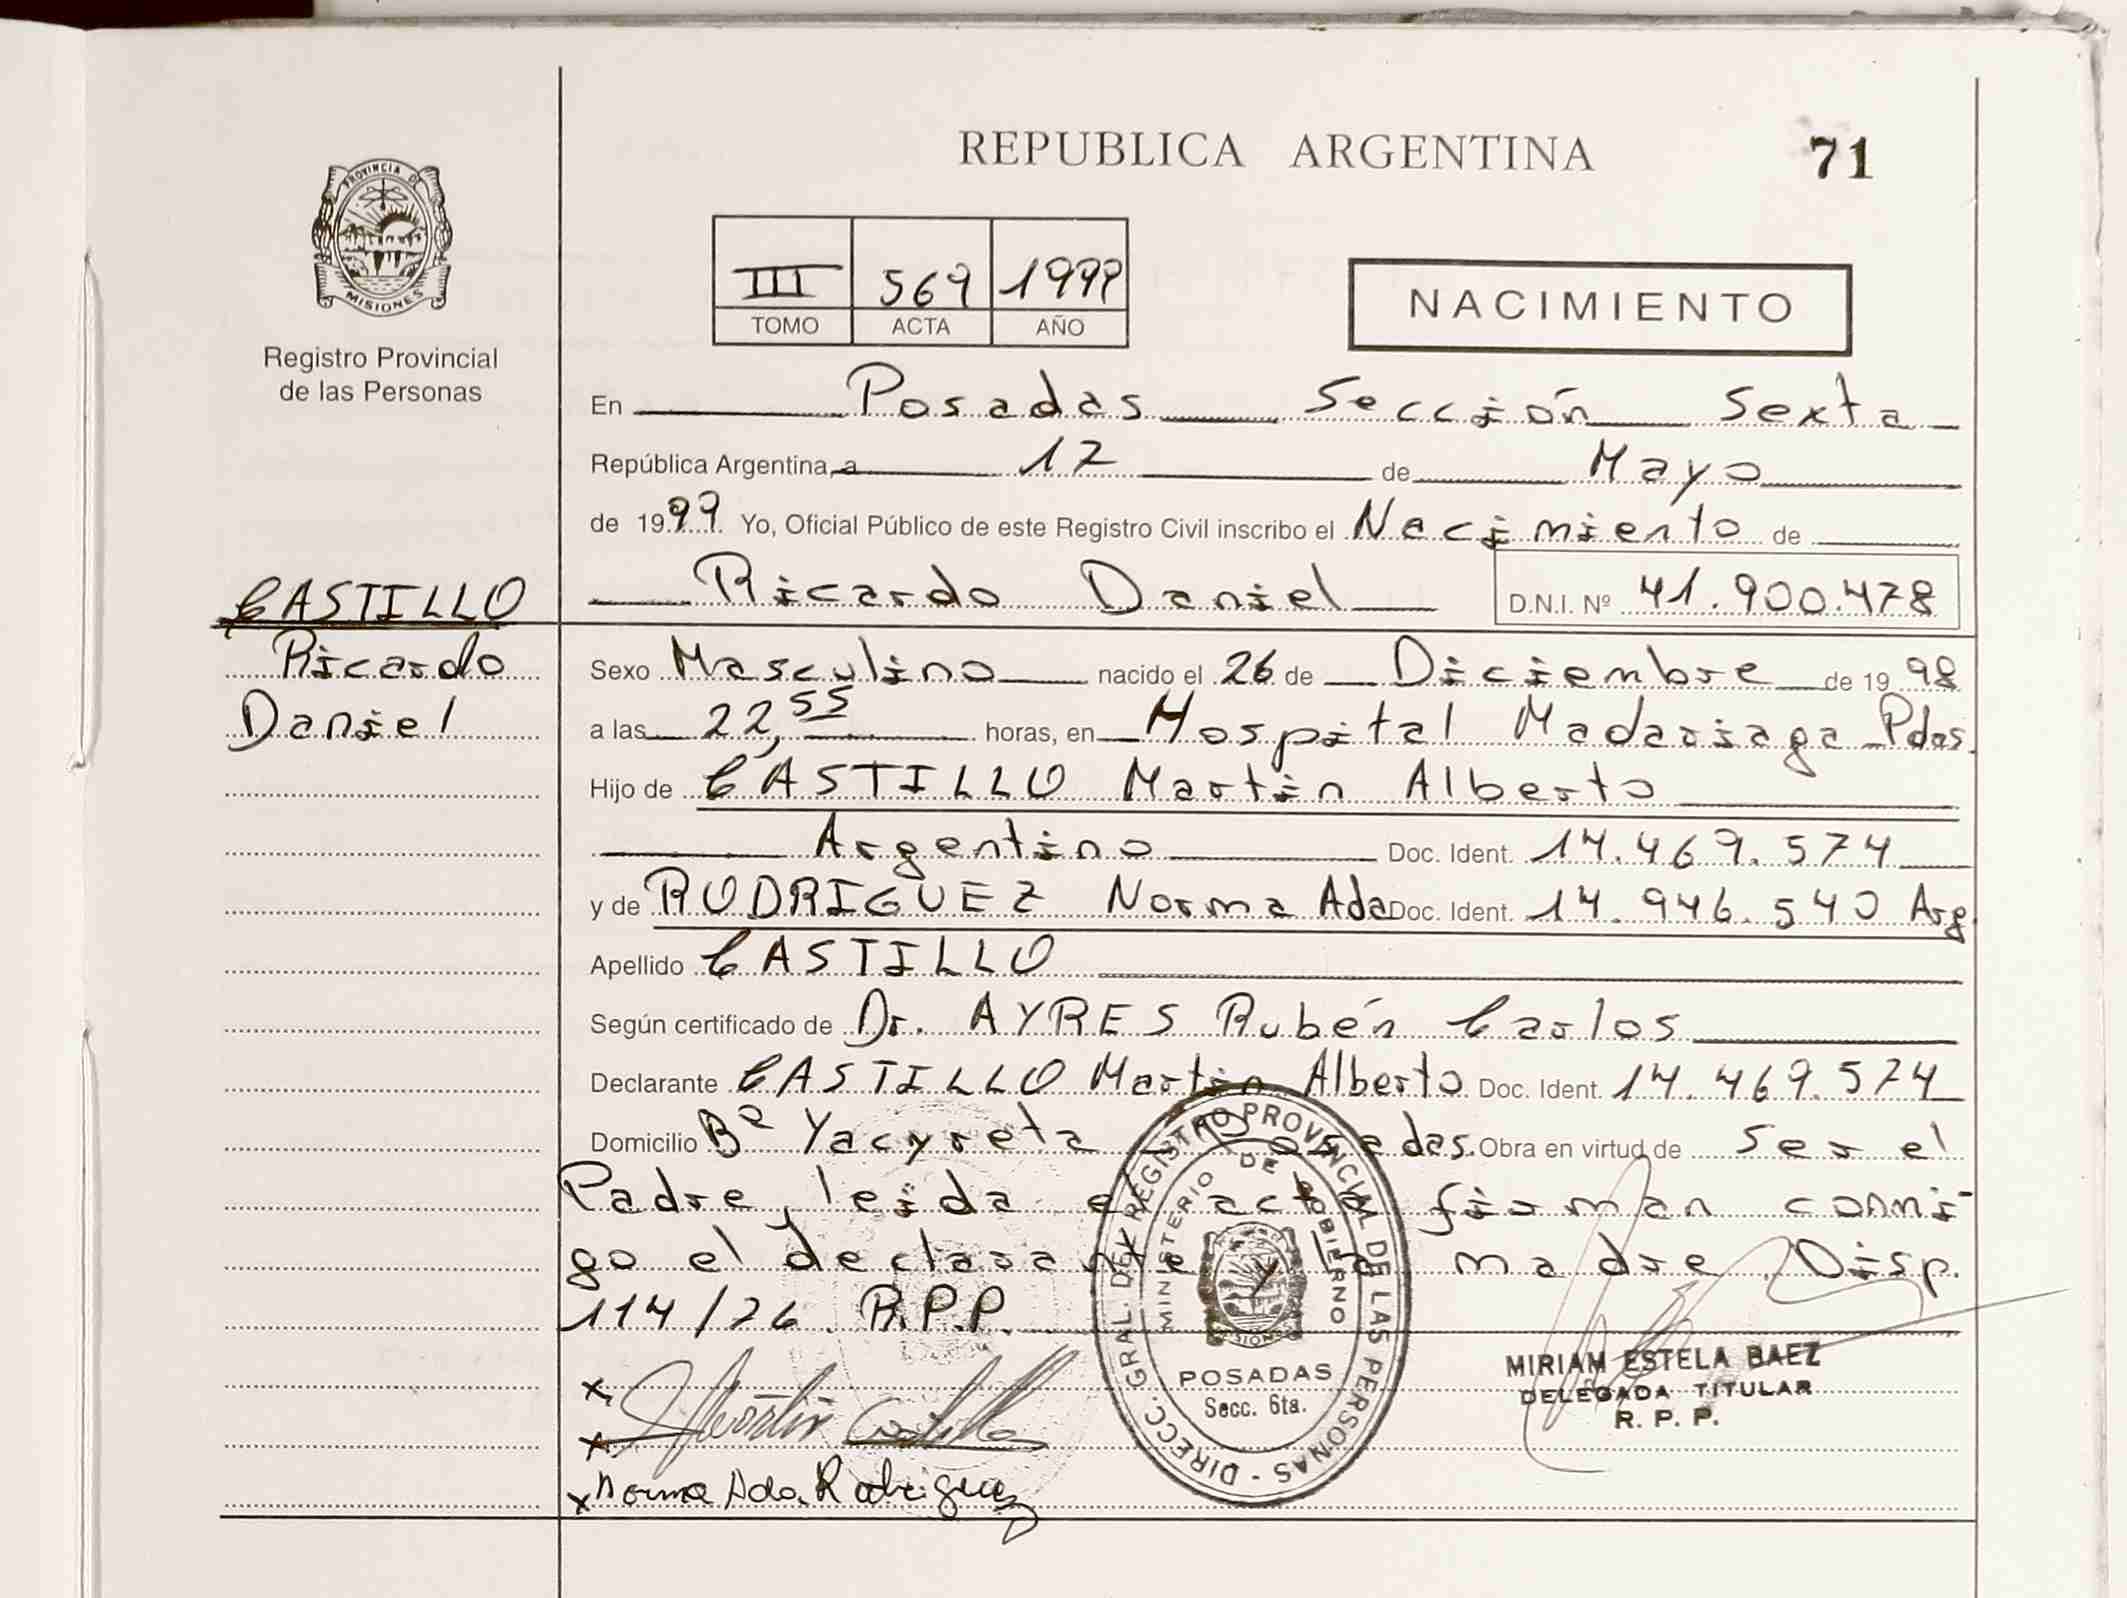 REPUBLICA ARGENTINA
71
PROVINCIA DE
MISIONES
Registro Provincial
de las Personas
III 569 1999
TOMO ACTA AÑO
NACIMIENTO
En Posadas Sección Sexta
República Argentina, a 17 de Mayo
de 1999. Yo, Oficial Público de este Registro Civil inscribo el Nacimiento de
CASTILLO
Ricardo
Daniel
Ricardo Daniel D.N.I. Nº 41.900.478
Sexo Masculino nacido el 26 de Diciembre de 19 98
a las 22,55 horas, en Hospital Madariaga Pdas.
Hijo de CASTILLO Martin Alberto
Argentino Doc. Ident. 14.469.574
y de RODRIGUEZ Norma Ada Doc. Ident. 14.946.540 Arg.
Apellido CASTILLO
Según certificado de Dr. AYRES Rubén Carlos
Declarante CASTILLO Martin Alberto Doc. Ident. 14.469.574
Domicilio Bº Yacyreta Posadas. Obra en virtud de ser el
Padre, leida el acta firman conmi-
go el declarante y la madre. Disp.
114/76 R.P.P.
DIRECC. GRAL. DEL REGISTRO PROVINCIAL DE LAS PERSONAS -
MINISTERIO DE GOBIERNO
MISIONES
POSADAS
Secc. 6ta.
MIRIAM ESTELA BAEZ
DELEGADA TITULAR
R. P. P.
x
x Martin Castillo
x Norma Ada Rodriguez